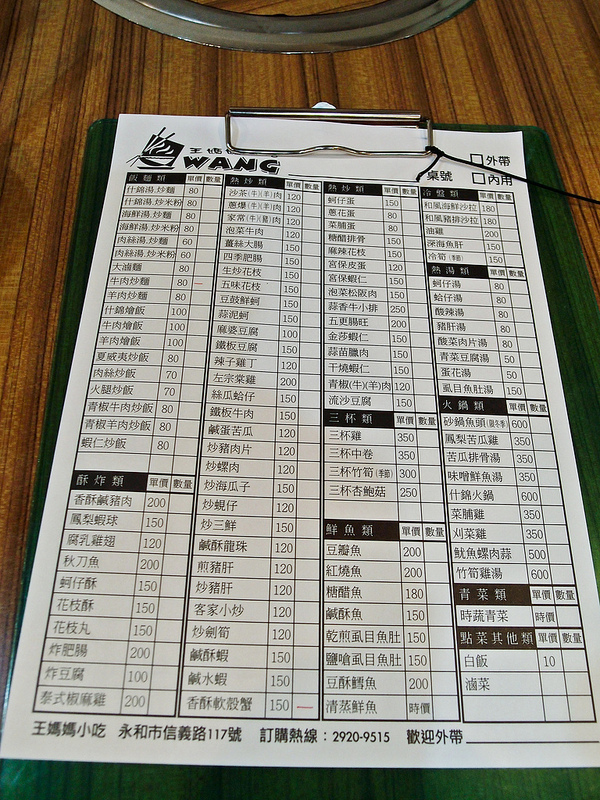 王媽
WANG
桌號
□外帶
□內用
飯麵類 單價 數量
什錦湯.炒麵 80
什錦湯.炒米粉 80
海鮮湯.炒麵 80
海鮮湯.炒米粉 80
肉絲湯.炒麵 60
肉絲湯.炒米粉 60
大滷麵 80
牛肉炒麵 80
羊肉炒麵 80
什錦燴飯 100
牛肉燴飯 100
羊肉燴飯 100
夏威夷炒飯 80
肉絲炒飯 70
火腿炒飯 70
青椒牛肉炒飯 80
青椒羊肉炒飯 80
蝦仁炒飯 80
酥炸類 單價 數量
香酥鹹豬肉 200
鳳梨蝦球 150
腐乳雞翅 120
秋刀魚 200
蚵仔酥 150
花枝酥 150
花枝丸 150
炸肥腸 200
炸豆腐 100
泰式椒麻雞 200
熱炒類 單價 數量
沙茶(牛)(羊)肉 120
蔥爆(牛)(羊)肉 120
家常(牛)(豬)肉 120
泡菜牛肉 120
薑絲大腸 150
四季肥腸 150
生炒花枝 150
五味花枝 150
豆鼓鮮蚵 150
蒜泥蚵 150
麻婆豆腐 100
鐵板豆腐 150
辣子雞丁 120
左宗棠雞 200
絲瓜蛤仔 150
鐵板牛肉 150
鹹蛋苦瓜 120
炒豬肉片 120
炒螺肉 150
炒海瓜子 150
炒蜆仔 120
炒三鮮 150
鹹酥龍珠 120
煎豬肝 120
炒豬肝 120
客家小炒 120
炒劍筍 120
鹹酥蝦 150
鹹水蝦 150
香酥軟殼蟹 150
熱炒類 單價 數量
蚵仔蛋 150
蔥花蛋 80
菜脯蛋 80
糖醋排骨 150
麻辣花枝 150
宮保皮蛋 120
宮保蝦仁 150
泡菜松阪肉 150
蒜香牛小排 250
五更腸旺 200
金莎蝦仁 150
蒜苗臘肉 150
干燒蝦仁 150
青椒(牛)(羊)肉 120
流沙豆腐 150
三杯類 單價 數量
三杯雞 350
三杯中卷 350
三杯竹筍(季節) 300
三杯杏鮑菇 250
鮮魚類 單價 數量
豆瓣魚 200
紅燒魚 200
糖醋魚 180
鹹酥魚 150
乾煎虱目魚肚 150
鹽嗆虱目魚肚 150
豆酥鱈魚 200
清蒸鮮魚 時價
冷盤類 單價 數量
和風海鮮沙拉 180
和風豬排沙拉 180
油雞 200
深海魚肝 150
冷筍(季節) 150
熱湯類 單價 數量
蚵仔湯 80
蛤仔湯 80
酸辣湯 80
豬肝湯 80
酸菜肉片湯 80
青菜豆腐湯 50
蛋花湯 50
虱目魚肚湯 150
火鍋類 單價 數量
砂鍋魚頭 600
鳳梨苦瓜雞 350
苦瓜排骨湯 350
味噌鮮魚湯 350
什錦火鍋 350
菜脯雞 350
刈菜雞 350
魷魚螺肉蒜 500
竹筍雞湯 600
青菜類 單價 數量
時蔬青菜 時價
點菜其他類 單價 數量
白飯 10
滷菜
王媽媽小吃 永和市信義路117號 訂購熱線：2920-9515 歡迎外帶